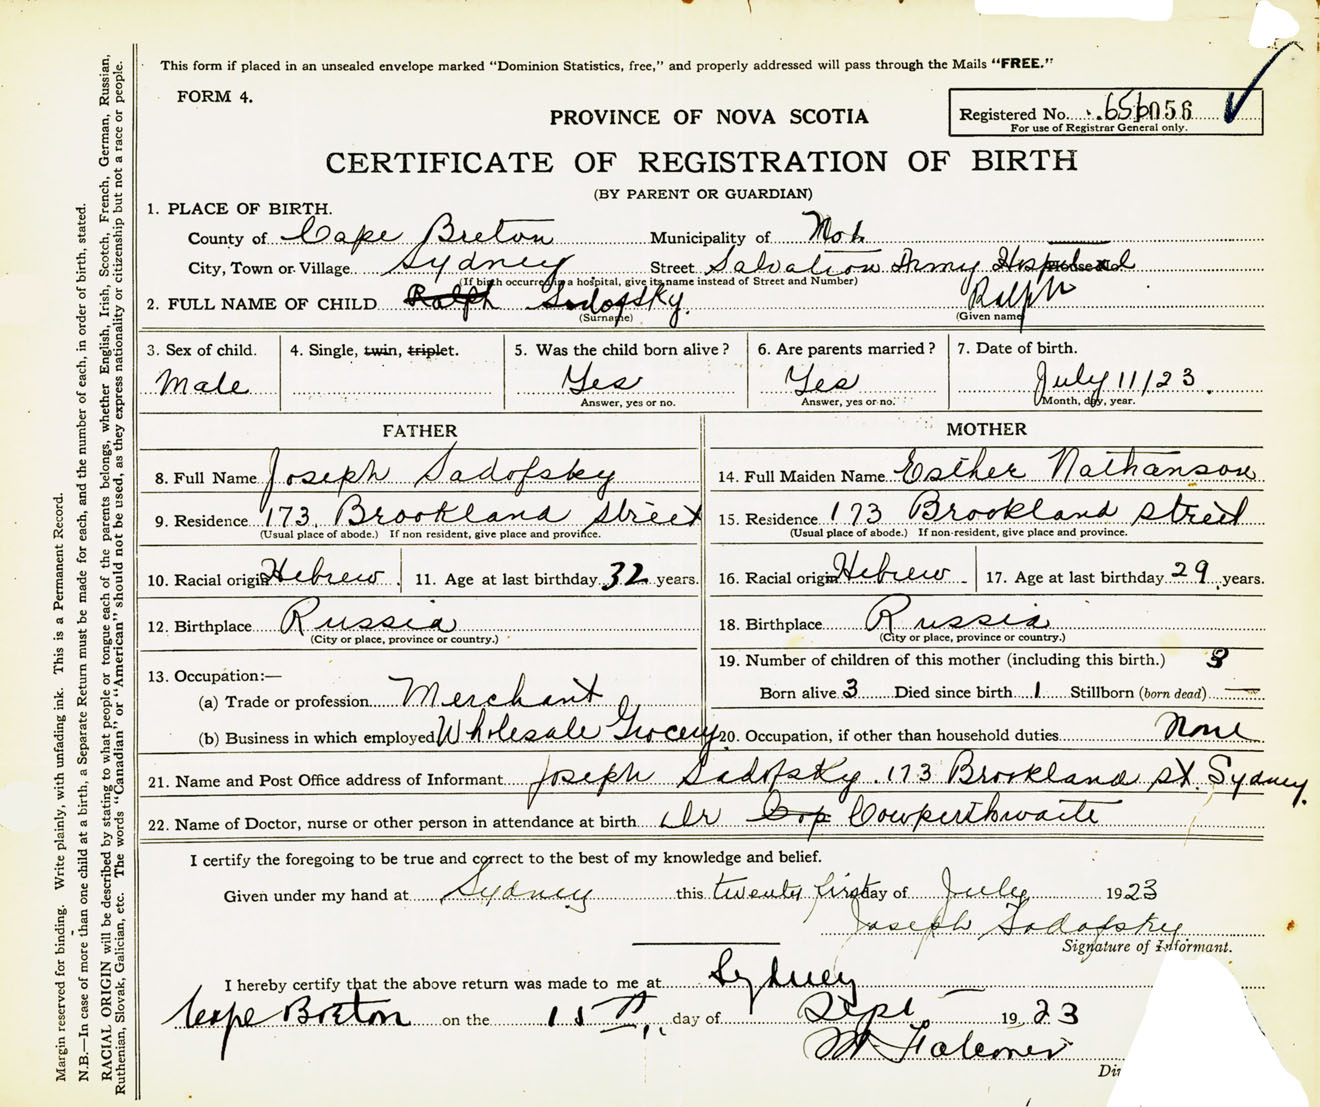 This form if placed in an unsealed envelope marked "Dominion Statistics, free," and properly addressed will pass through the Mails "FREE."
FORM 4.
PROVINCE OF NOVA SCOTIA
Registered No.
For use of Registrar General only.
CERTIFICATE OF REGISTRATION OF BIRTH
(BY PARENT OR GUARDIAN)
1. PLACE OF BIRTH.
County of Cape Breton Municipality of
City, Town or Village Sydney Street Salvation Army Hospital
(If birth occurred in a hospital, give its name instead of Street and Number)
2. FULL NAME OF CHILD Ralph Sadofsky. Ralph
(Surname) (Given name)
3. Sex of child. 4. Single, twin, triplet. 5. Was the child born alive? 6. Are parents married? 7. Date of birth.
Male Yes Yes July 11/23.
Answer, yes or no. Answer, yes or no. Month, day, year.
FATHER MOTHER
8. Full Name Joseph Sadofsky 14. Full Maiden Name Esther Nathanson
9. Residence 173. Brookland Street 15. Residence 173 Brookland Street
(Usual place of abode.) If non resident, give place and province. (Usual place of abode.) If non-resident, give place and province.
10. Racial origin Hebrew. 11. Age at last birthday 32 years. 16. Racial origin Hebrew 17. Age at last birthday 29 years.
12. Birthplace Russia 18. Birthplace Russia
(City or place, province or country.) (City or place, province or country.)
13. Occupation:— 19. Number of children of this mother (including this birth.) 3
(a) Trade or profession Merchant Born alive 3 Died since birth 1 Stillborn (born dead) —
(b) Business in which employed Wholesale Grocery 20. Occupation, if other than household duties None
21. Name and Post Office address of Informant Joseph Sadofsky. 173 Brookland St. Sydney.
22. Name of Doctor, nurse or other person in attendance at birth Dr Cop Cowperthwaite
I certify the foregoing to be true and correct to the best of my knowledge and belief.
Given under my hand at Sydney this twenty first day of July 1923
Joseph Sadofsky
Signature of Informant.
I hereby certify that the above return was made to me at Sydney
Cape Breton on the 15th day of Sept 1923
Falconer
Margin reserved for binding. Write plainly, with unfading ink. This is a Permanent Record.
N.B.—In case of more than one child at a birth, a Separate Return must be made for each, and the number of each, in order of birth, stated.
RACIAL ORIGIN will be described by stating to what people or tongue each of the parents belongs, whether English, Irish, Scotch, French, German, Russian,
Ruthenian, Slovak, Galician, etc. The words "Canadian" or "American" should not be used, as they express nationality or citizenship but not a race or people.